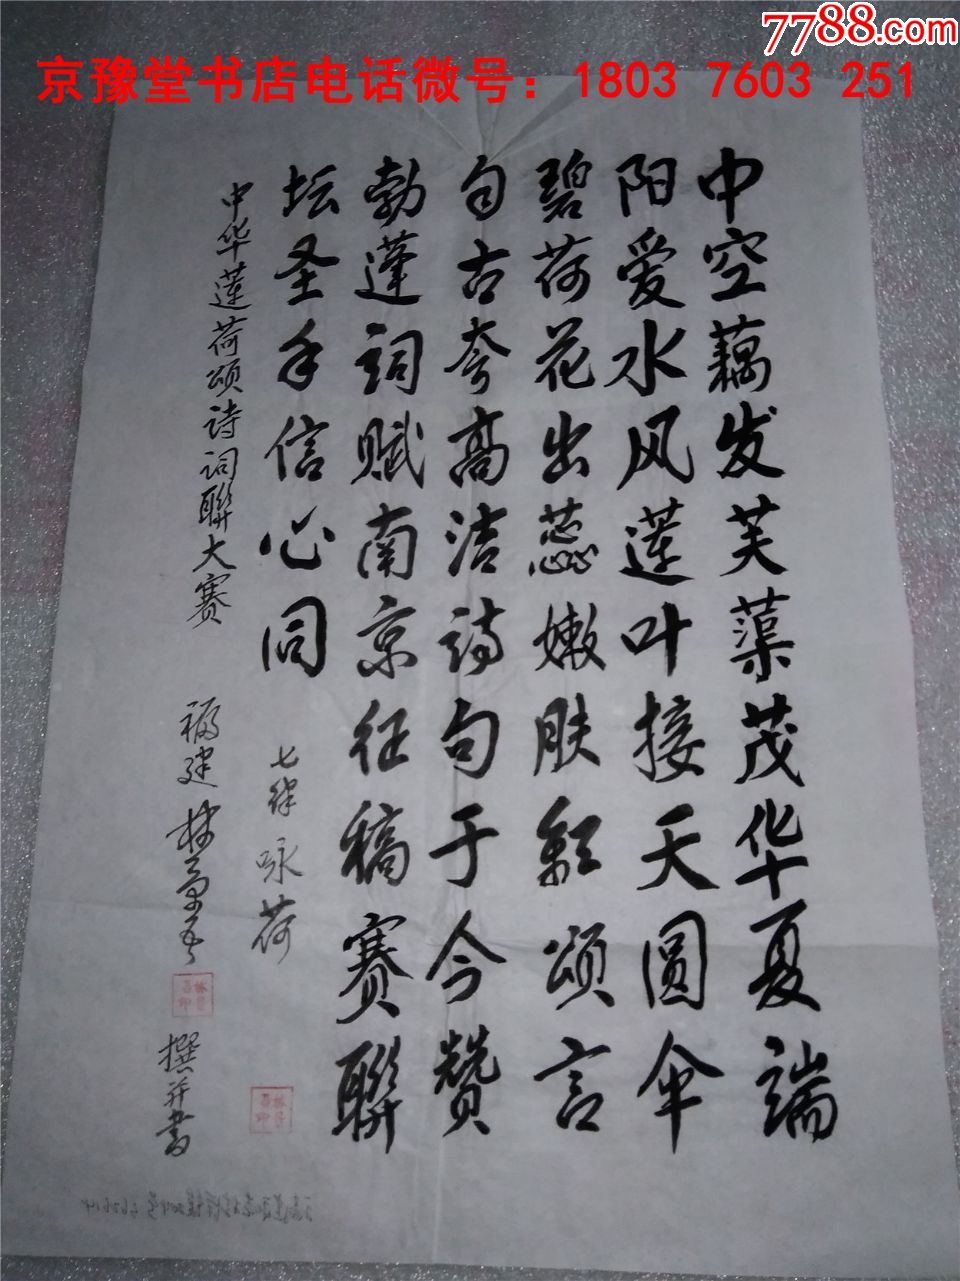 7788.com
京豫堂书店电话微号：1803 7603 251
中空藕发芙蕖茂华夏端
阳爱水风莲叶接天圆伞
碧荷花出蕊嫩肤彩颂言
自古夸高洁诗句于今赞
勃蓬词赋南京征稿赛联
坛圣手信心同
七律咏荷
中华莲荷颂诗词联大赛
福建林
撰并书